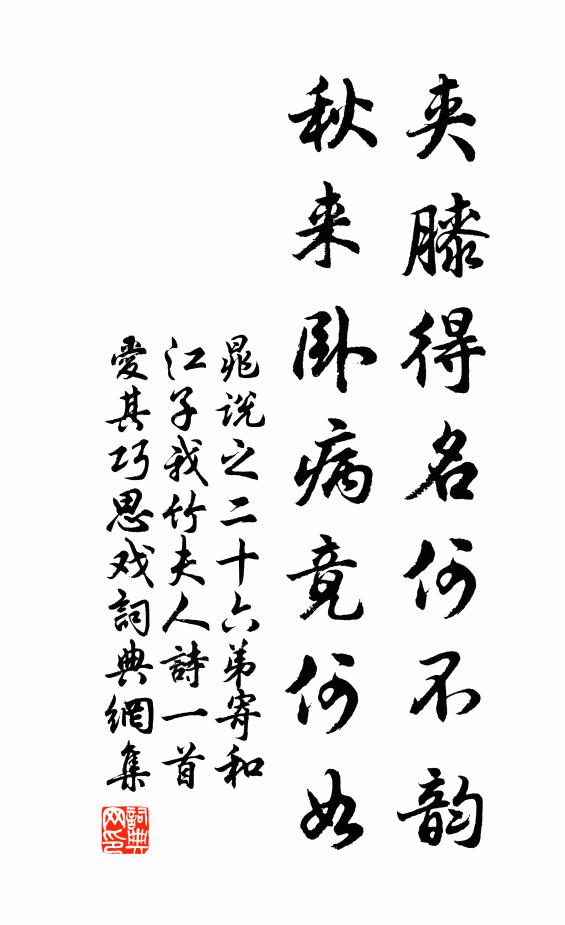 夹膝得名何不韵
秋来卧病竟何如
晁说之二十六弟寄和
江子我竹夫人詩一首
愛其巧思戏詞典網集
詞典网印